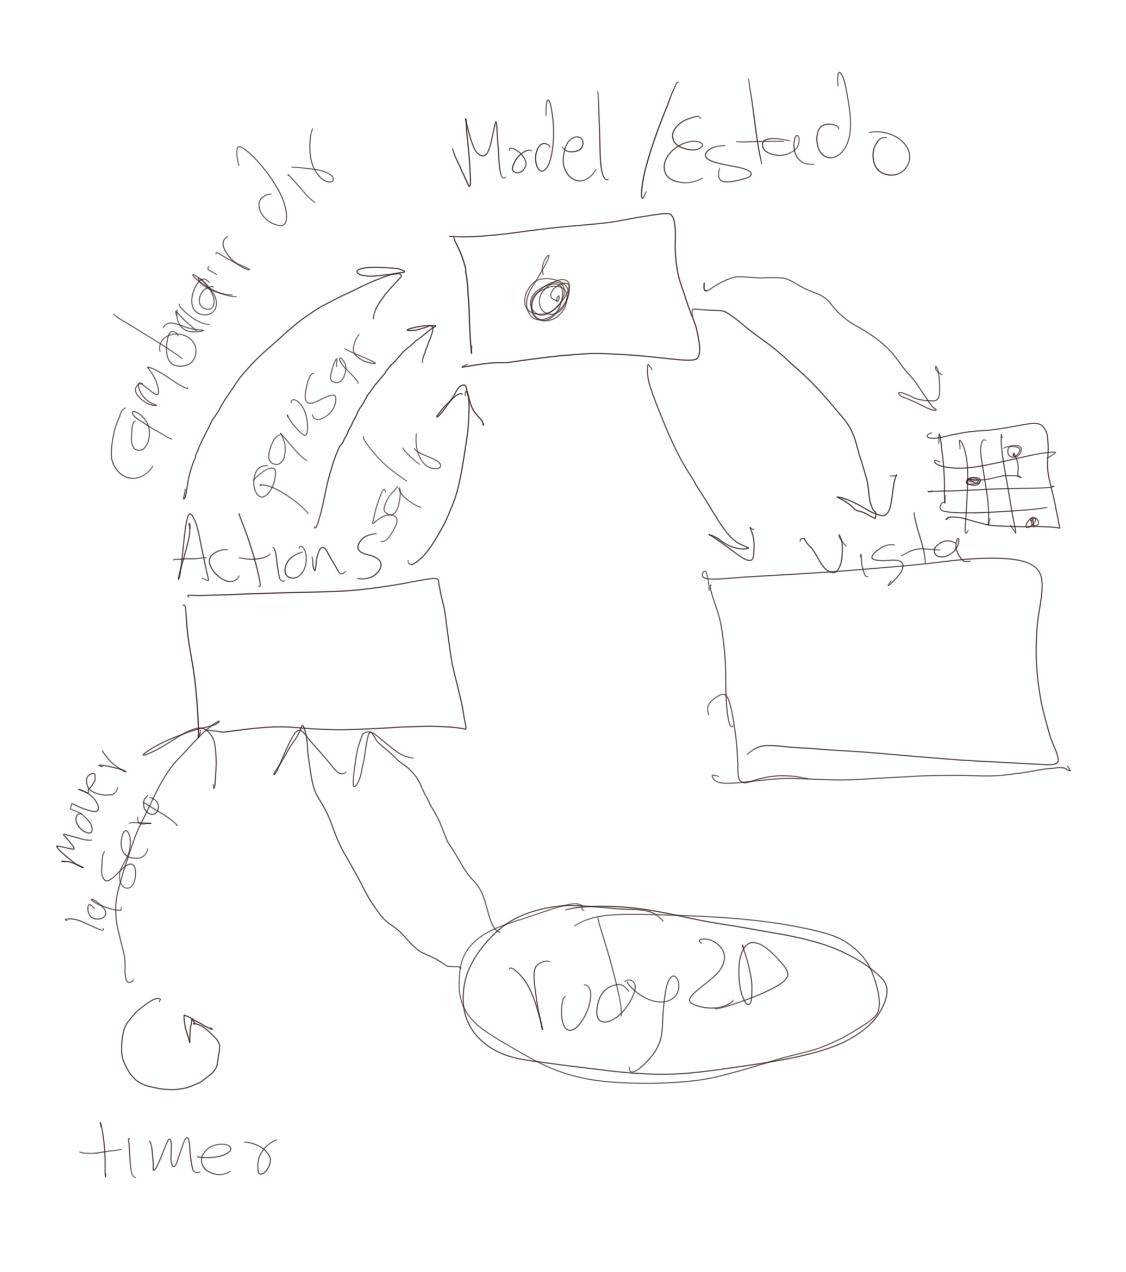 Model/Estado
cambiar dir
pausar
salir
Actions
Vista
mover
la serp
ruby2D
timer